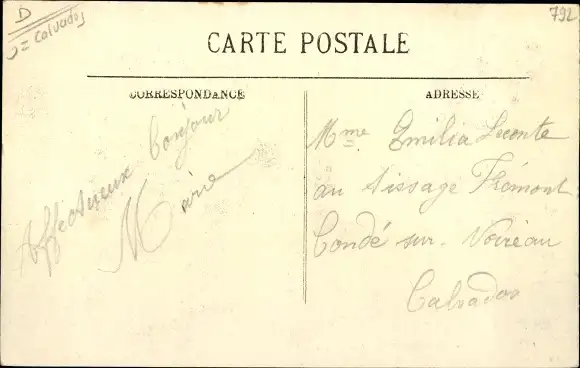 D
= Calvados
792
CARTE POSTALE
CORRESPONDANCE
ADRESSE
Affectueux bonjour
Marie
Mme Emilia Leconte
au tissage Frémont
Condé sur Noireau
Calvados